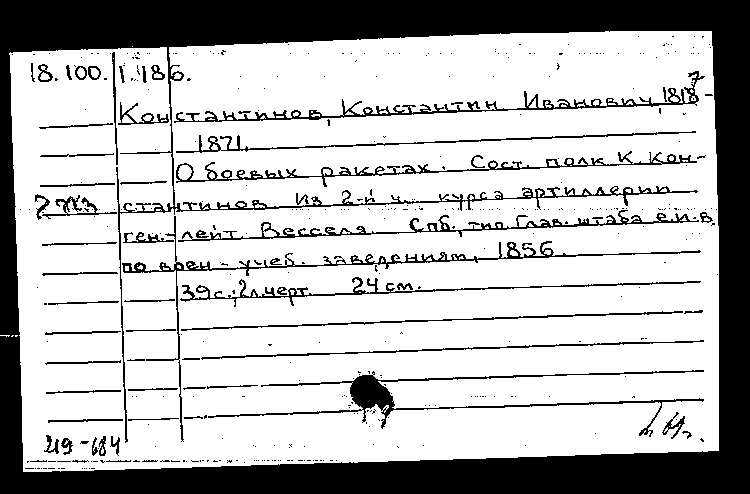 18.100.1.186.
Константинов, Константин Иванович, 1818-
7
1871.
О боевых ракетах. Сост. полк К. Кон-
2 экз стантинов. Из 2-й ч. курса артиллерии
ген.-лейт. Весселя. Спб., тип. Глав. штаба е.и.в.
по воен-учеб. заведениям, 1856.
39 с.; 2 л. черт. 24 см.
219-684